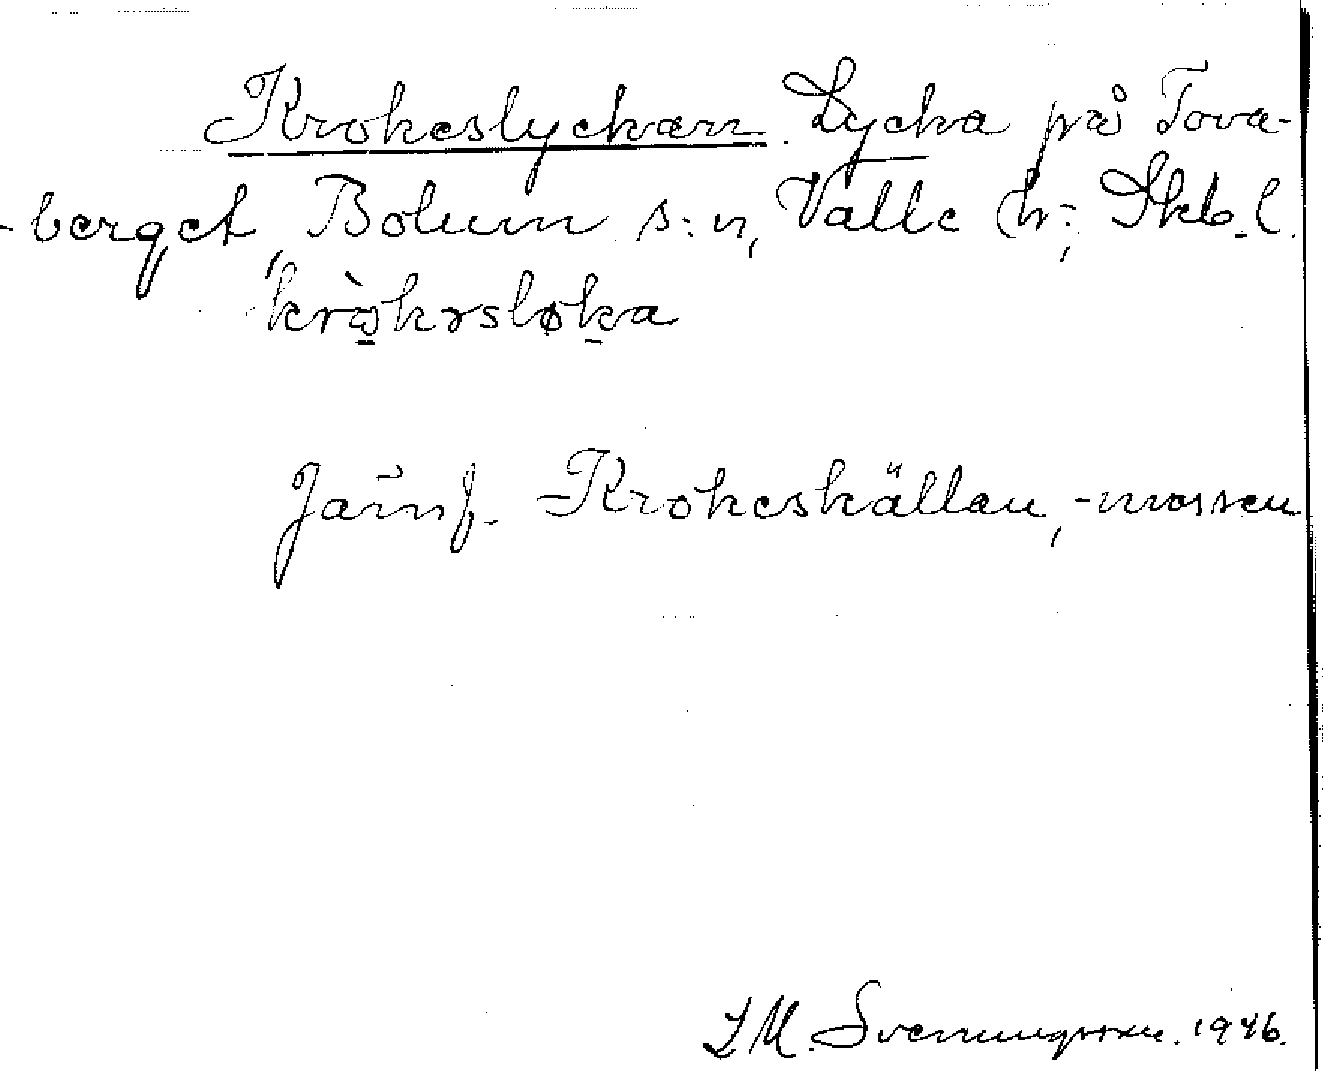 Krokeslyckan. Lycka på Tova-
-berget, Bolum s:n, Valle hr; Skb.l.
kròkrsløka
Jämf. Krokeskällan, -mossen
S M. Svenungsson. 1946.